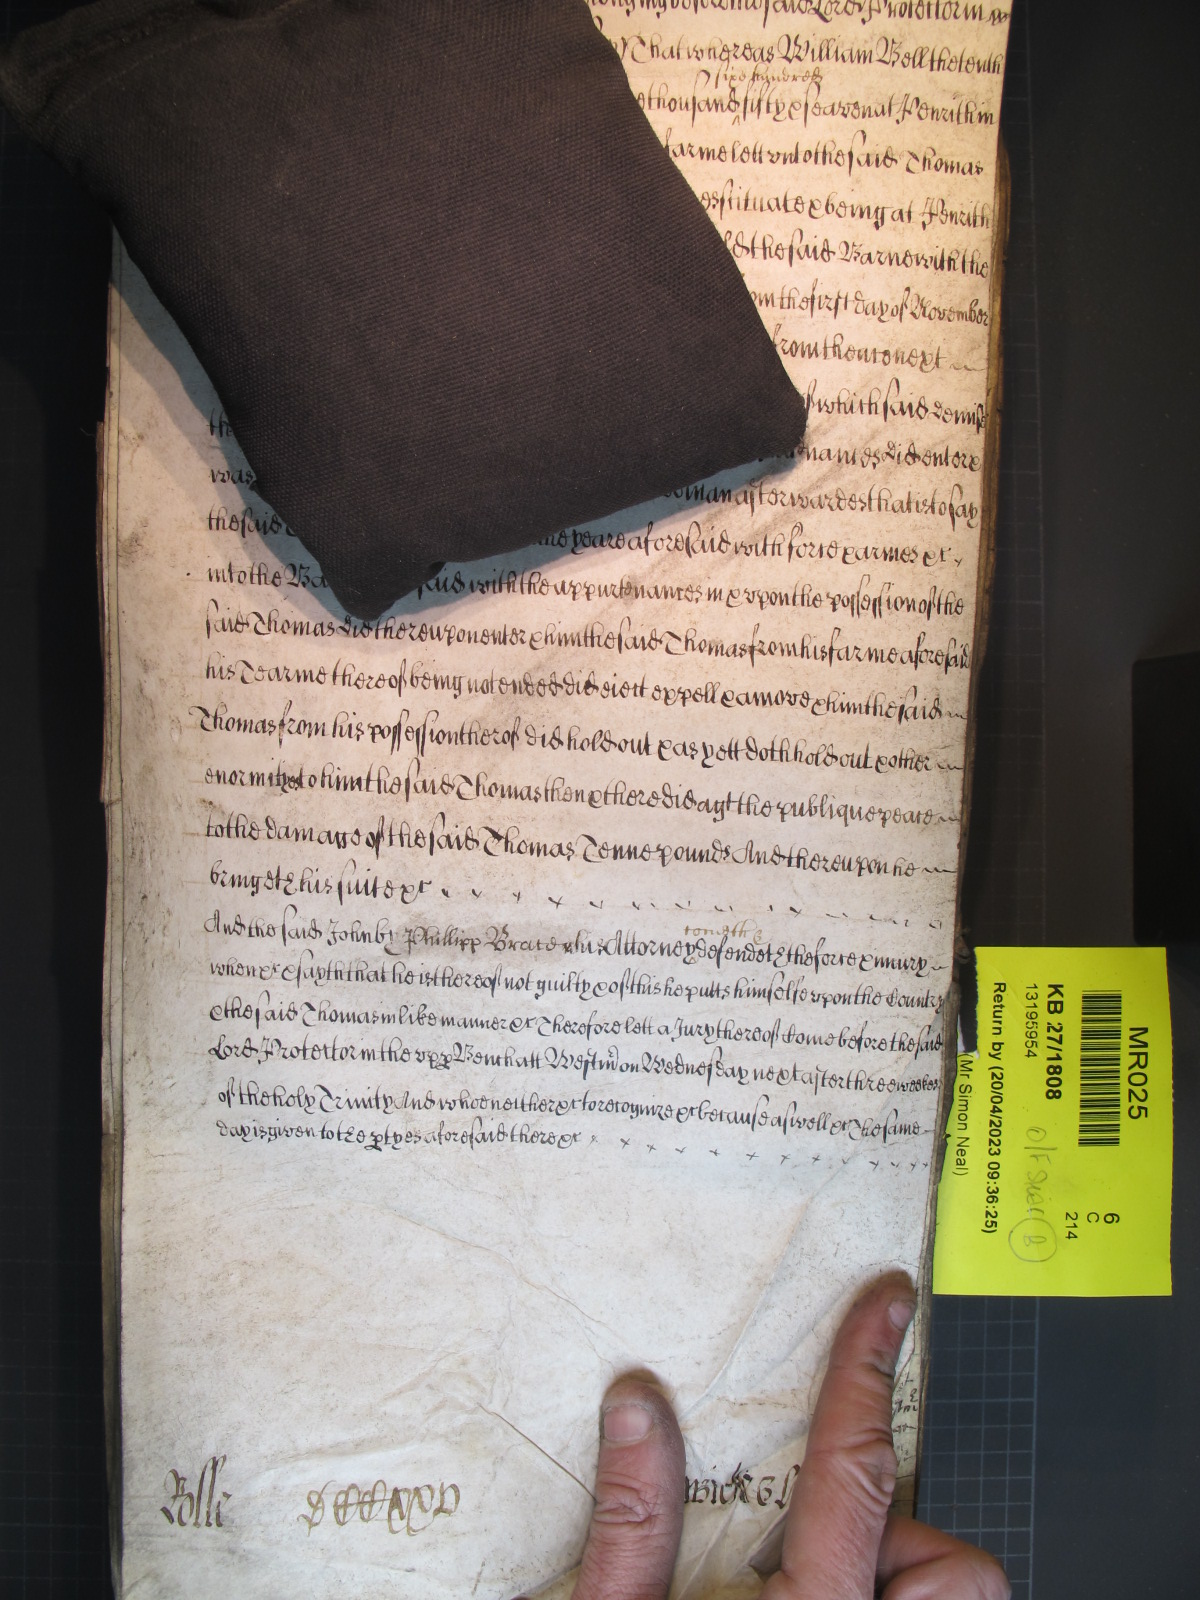 longing before the said Lord Protector in
That whereas William Bell the tenth
six hundred
thousand fifty & seaven at Penrith in
farme lett unto the said Thomas
es situate & being at Penrith
the said Barne with the
om the first day of November
from thence next
which said demise
th
names did enter &
was
oman afterwardes that is to say
the said
me yeare aforesaid with force & armes &c
into the Ba said with the appurtenances in & vpon the possession of the
said Thomas did therevpon enter & him the said Thomas from his farme aforesaid
his Tearme thereof being not ended did eiect expell & amove & him the said
Thomas from his possession therof did hold out & as yett doth hold out & other
enormityes to him the said Thomas then & there did agt the publique peace
to the damage of the said Thomas Tenne pounds And therevpon he
bringeth his suite &c
And the said John by Phillipp his Attorney
cometh &
defendeth the force & iniury
when &c & sayth that he is thereof not guilty & of this he putts himselfe vpon the Country
& the said Thomas in like manner &c Therefore lett a Jury thereof come before the said
Lord Protector in the vpp Bench att Westmr on Wednesday next after three weekes
of the holy Trinity And who neither &c to recognize &c because aswell &c The same
day is given to the ptyes aforesaid there &c
Rolle
MR025
6
C
214
KB 27/1808
13195954
Return by (20/04/2023 09:36:25)
(Mr Simon Neal)